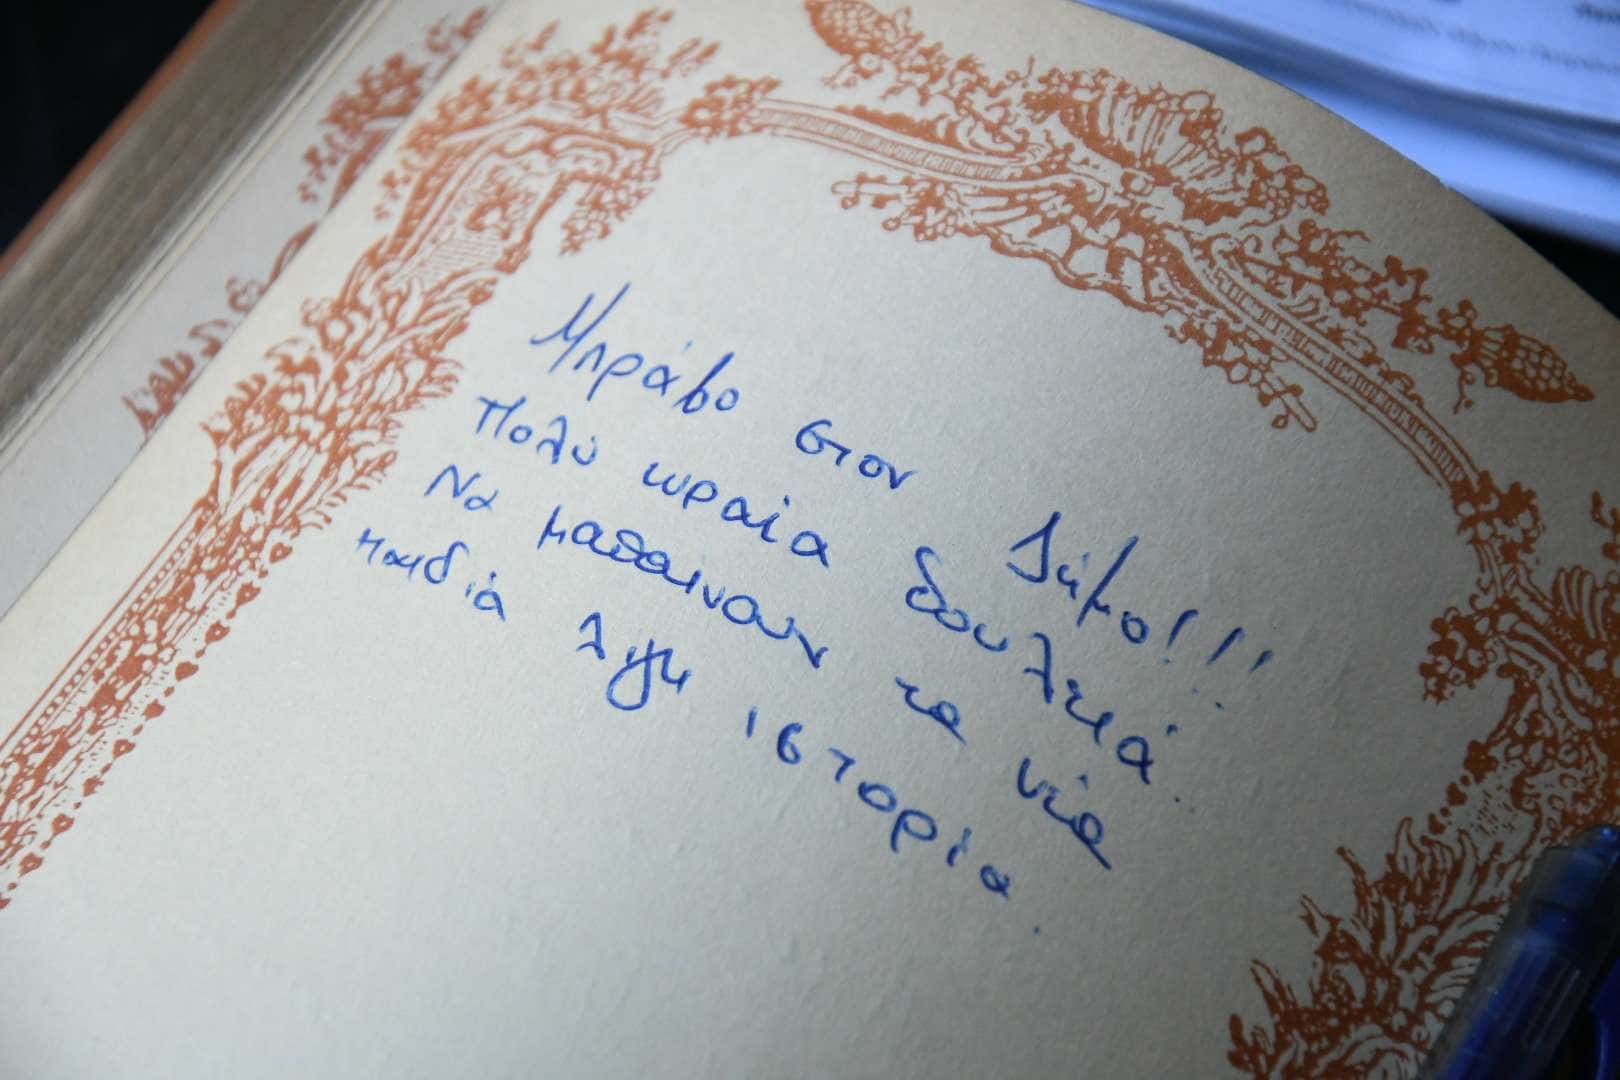 Μπράβο στον Δήμο!!!
Πολύ ωραία δουλειά.
Να μαθαίνουν τα νέα
παιδιά λίγη ιστορία.